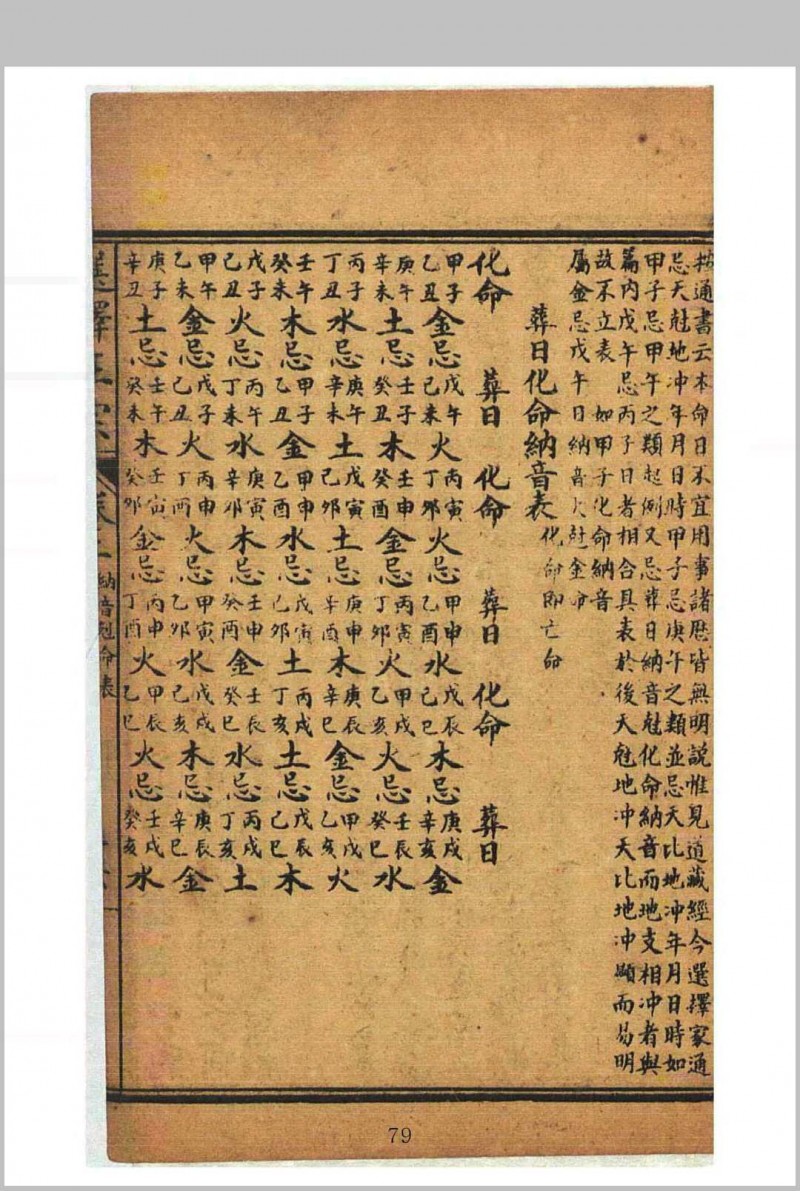 按通書云本命日不宜用事諸曆皆無明說惟見道藏經今選擇家通
忌天尅地冲年月日時甲子忌庚午之類並忌天比地冲年月日時如
甲子忌甲午之類起例又忌葬日納音尅化命納音而地支相冲者與
篇內戊午忌丙子日者相合具表於後天尅地冲天比地冲顯而易明
故不立表 如甲子化命納音
屬金忌戊午日納音火尅金命
葬日化命納音表 化命即亡命
化命 葬日 化命 葬日 化命 葬日
甲子乙丑金忌戊午己未火 丙寅丁卯火忌甲申乙酉水 戊辰己巳木忌庚戌辛亥金
庚午辛未土忌壬子癸丑木 壬申癸酉金忌丙寅丁卯火 甲戌乙亥火忌壬辰癸巳水
丙子丁丑水忌庚午辛未土 戊寅己卯土忌庚申辛酉木 庚辰辛巳金忌甲戌乙亥火
壬午癸未木忌甲子乙丑金 甲申乙酉水忌戊寅己卯土 丙戌丁亥土忌戊辰己巳木
戊子己丑火忌丙午丁未水 庚寅辛卯木忌壬申癸酉金 壬辰癸巳水忌丙戌丁亥土
甲午乙未金忌戊子己丑火 丙申丁酉火忌甲寅乙卯水 戊戌己亥木忌庚辰辛巳金
庚子辛丑土忌壬午癸未木 壬寅癸卯金忌丙申丁酉火 甲辰乙巳火忌壬戌癸亥水
選擇正宗 卷二 納音尅命表
79